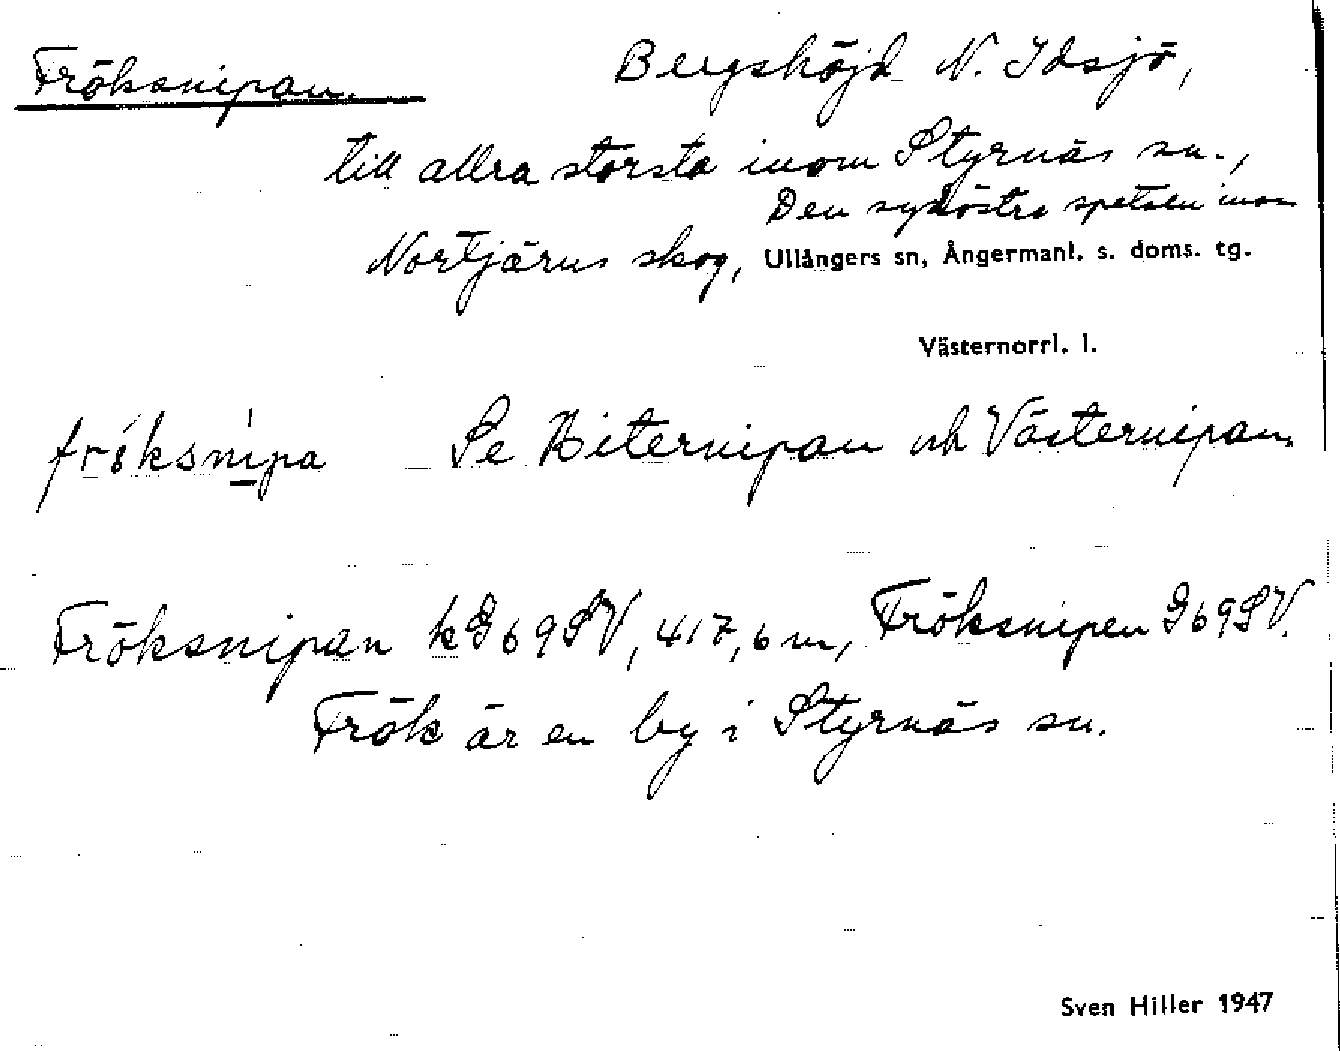 Fröksnipan. Bergshöjd N. Idsjö,
till allra största inom Styrnäs sn.,
Den sydöstra spetsen inom
Nortjärns skog, Ullångers sn, Ångermanl. s. doms. tg.
Västernorrl. l.
fröksnipa Se Biternipan och Västernipan.
Fröksnipan kG69SV, 417,6 m, Fröksnipen G69SV.
Frök är en by i Styrnäs sn.
Sven Hiller 1947